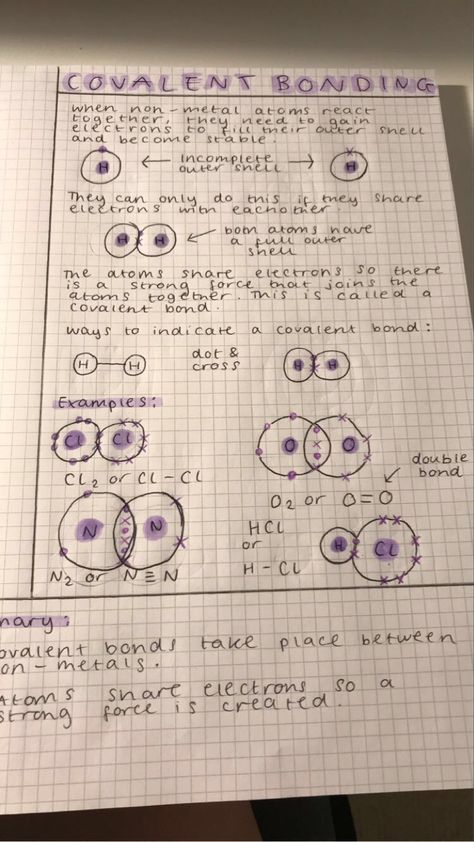 COVALENT BONDING
when non-metal atoms react
together, they need to gain
electrons to fill their outer shell
and become stable.
H
incomplete
outer shell
H
They can only do this if they share
electrons with eachother.
H H
both atoms have
a full outer
shell
The atoms share electrons so there
is a strong force that joins the
atoms together. This is called a
covalent bond.
ways to indicate a covalent bond:
H—H
dot &
cross
H H
Examples:
Cl Cl
Cl₂ or Cl-Cl
O O
double
bond
O₂ or O=O
N N
N₂ or N≡N
HCl
or
H-Cl
H Cl
mary:
ovalent bonds take place between
on-metals.
Atoms share electrons so a
strong force is created.